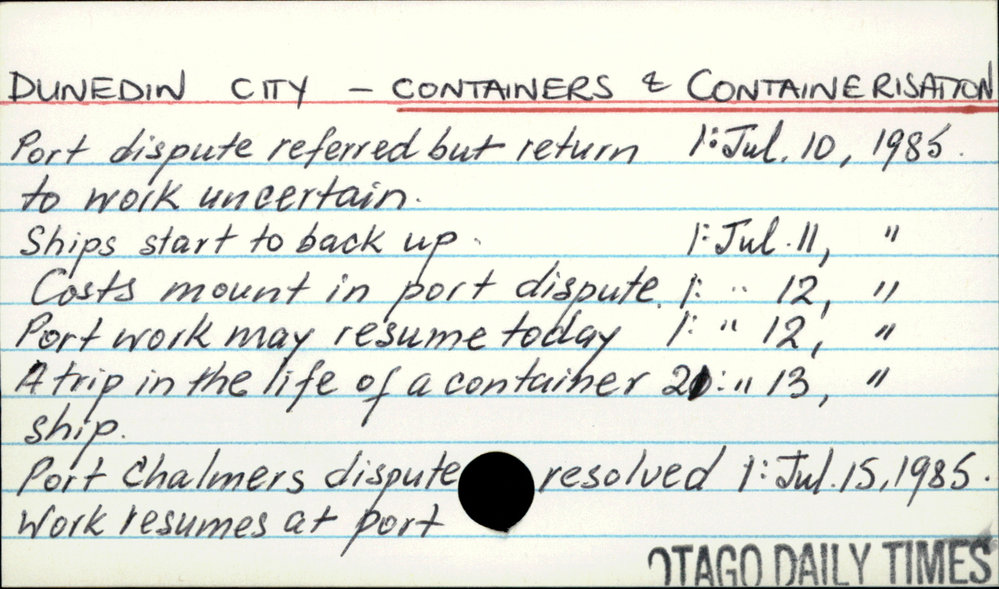 DUNEDIN CITY – CONTAINERS & CONTAINERISATION
Port dispute referred but return 1: Jul. 10, 1985.
to work uncertain.
Ships start to back up. 1: Jul. 11, "
Costs mount in port dispute. 1: " 12, "
Port work may resume today 1: " 12, "
A trip in the life of a container 21: " 13, "
ship.
Port Chalmers dispute resolved 1: Jul. 15, 1985.
Work resumes at port
OTAGO DAILY TIMES